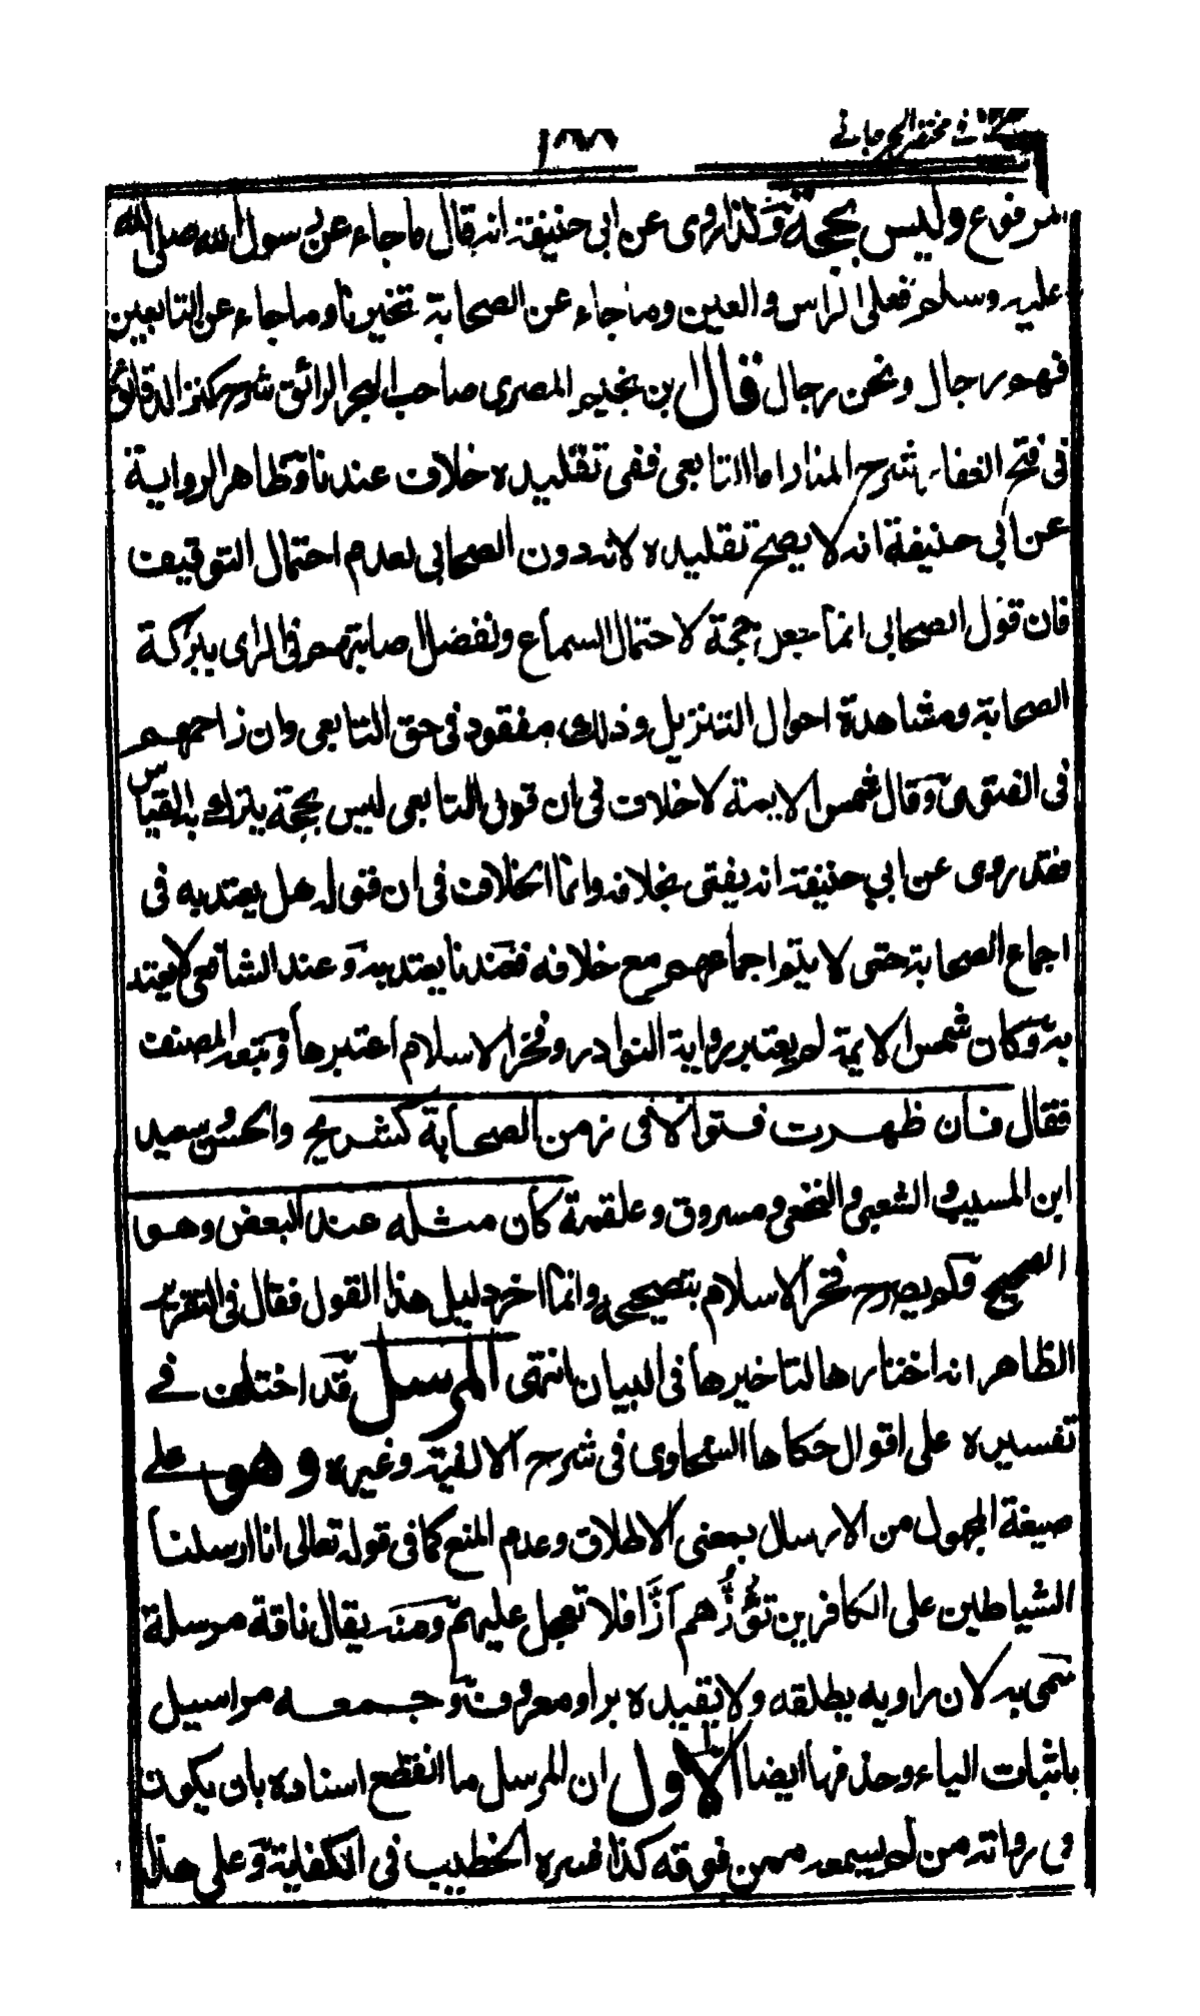 في مختصر الجرجاني
١٨٦
المرفوع وليس بحجة وكذا روى عن ابي حنيفة انه قال ما جاء عن رسول الله صلى الله
عليه وسلم فعلى الراس والعين وما جاء عن الصحابة تخيرنا وما جاء عن التابعين
فهم رجال ونحن رجال قال ابن نجيم المصري صاحب البحر الرائق شرح كنز الدقائق
في فتح الغفار بشرح المنار اما التابعى ففى تقليده خلاف عندنا وظاهر الرواية
عن ابي حنيفة انه لا يصح تقليده لانه دون الصحابى لعدم احتمال التوقيف
فان قول الصحابى انما جعل حجة لاحتمال السماع ولفضل اصابتهم في الراى ببركة
الصحابة ومشاهدة احوال التنزيل وذلك مفقود في حق التابعى وان زاحمهم
في الفتوى وقال شمس الايمة لا خلاف في ان قول التابعى ليس بحجة يترك به القياس
فقد روى عن ابي حنيفة انه يفتى بخلافه وانما الخلاف في ان قوله هل يعتد به في
اجماع الصحابة حتى لا يتم اجماعهم مع خلافه فعندنا يعتد به وعند الشافعي لا يعتد
به وكان شمس الايمة لم يعتبر رواية النوادر وفخر الاسلام اعتبرها وتبعه المصنف
فقال فان ظهرت فتواه في زمن الصحابة كشريح والحسن وسعيد
ابن المسيب والشعبي والنخعي ومسروق وعلقمة كان مثله عند البعض وهو
الصحيح ولم يصرح فخر الاسلام بتصحيحه وانما اخر دليل هذا القول فقال في التقرير
الظاهر انه اختارها لتاخيرها في البيان انتهى المرسل قد اختلف في
تفسيره على اقوال حكاها السخاوى في شرح الالفية وغيره وهو على
صيغة المجهول من الارسال بمعنى الاطلاق وعدم المنع كما في قوله تعالى انا ارسلنا
الشياطين على الكافرين تَؤُزُّهم أزًّا فلا تعجل عليهم ومنه يقال ناقة مرسلة
سمى به لان راويه يطلقه ولا يقيده براو معروف وجمعه مراسيل
باثبات الياء وحذفها ايضا الاول ان المرسل ما انقطع اسناده بان يكون
في رواته من لم يسمعه ممن فوقه كذا فسره الخطيب في الكفاية وعلى هذا